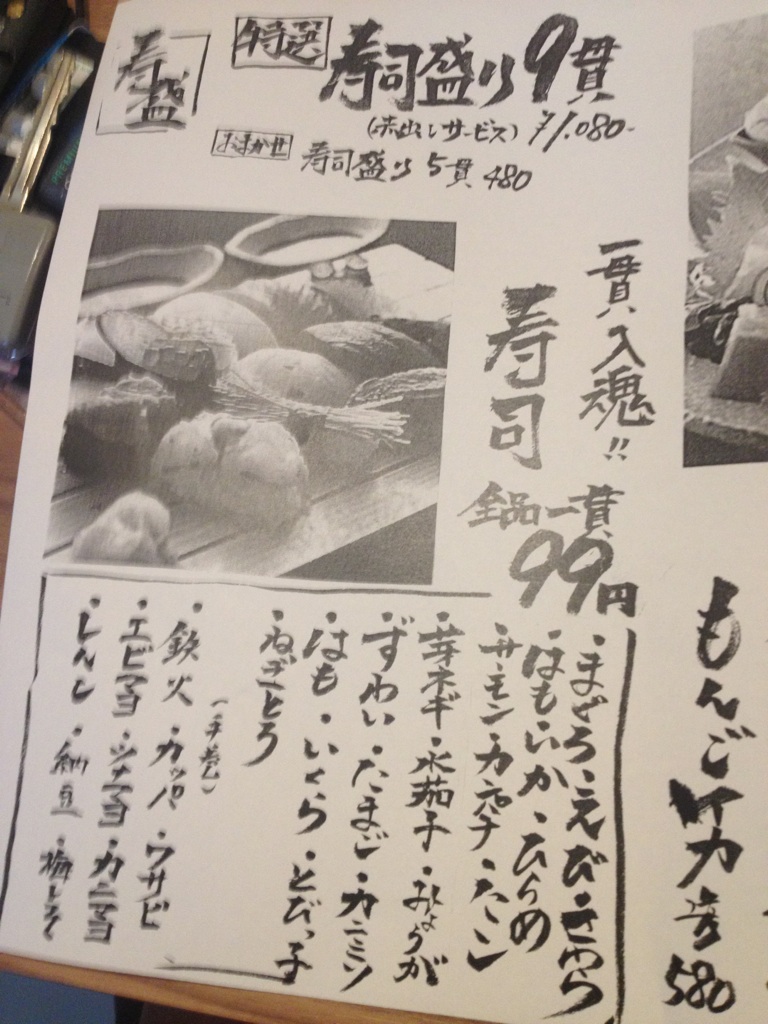 寿盛
特選 寿司盛り9貫
(赤出しサービス) ¥1,080-
おまかせ 寿司盛り5貫 480
一貫入魂!!
寿司
全品一貫
99円
・まぐろ・えび・さわら
・はも・いか・ひらめ
・サーモン・カンパチ・たこ
・芽ネギ・水茄子・みょうが
・ずわい・たまご・カニミソ
・はも・いくら・とびっ子
・ねぎとろ
(手巻)
・鉄火・カッパ・ワサビ
・エビマヨ・ツナマヨ・カニマヨ
・しんこ・納豆・梅しそ
もんごイカ
580